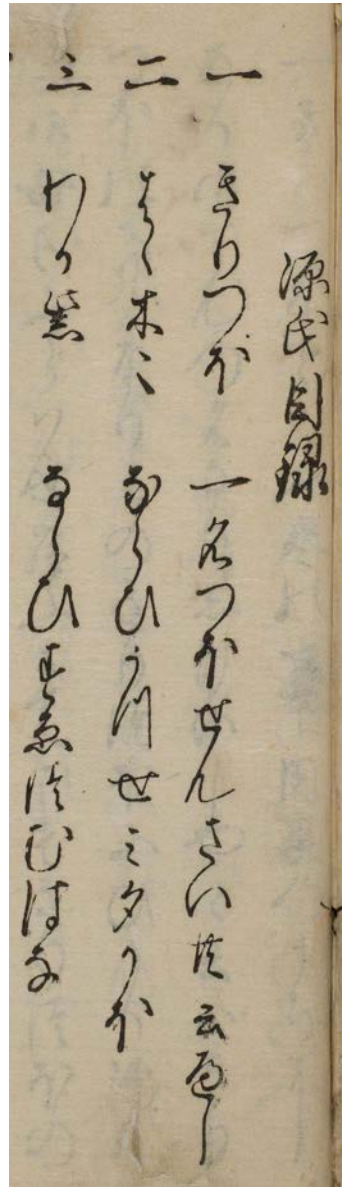 源氏目録
一 きりつほ 一名つほせんさい共云へし
二 はゝ木ゝ ならひうつせミ夕かほ
三 わか紫 ならひすゑつむはな